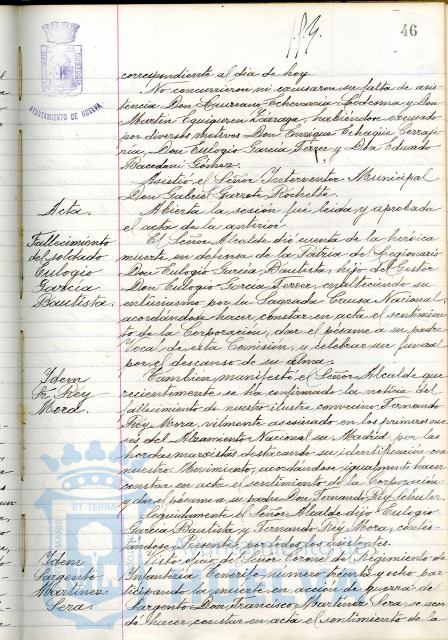 46
AYUNTAMIENTO DE HUELVA
correspondiente al dia de hoy.
No concurrieron ni excusaron su falta de asis-
tencia Don Laureano Echevarria Ledesma y Don
Martin Eguiguren Lizaraga, habiendose excusado
por diversos motivos Don Enrique Echagüe
Don Eulogio Garcia Ferrer y Don Eduardo
Bacedoni Gómez.
Asistió el Señor Interventor Municipal
Don Gabriel Garrote Rochette.
Acta.
Abierta la sesión fué leida y aprobada
el acta de la anterior.
Fallecimiento
del soldado
Eulogio
Garcia
Bautista.
El Señor Alcalde dió cuenta de la heróica
muerte en defensa de la Patria del Legionario
Don Eulogio Garcia Bautista, hijo del Gestor
Don Eulogio Garcia Ferrer, enalteciendo su
entusiasmo por la Sagrada Causa Nacional
acordándose hacer constar en acta el sentimien-
to de la Corporación, dar el pésame a su padre
Vocal de esta Comisión, y celebrar un funeral
por el descanso de su alma.
Idem
Sr. Rey
Mora.
Tambien manifestó el Señor Alcalde que
recientemente se ha confirmado la noticia del
fallecimiento de nuestro ilustre convecino Fernando
Rey Mora, vilmente asesinado en los primeros me-
ses del Alzamiento Nacional en Madrid por las
hordas marxistas destacando su identificación con
nuestro Movimiento, acordandose igualmente hacer
constar en acta el sentimiento de la Corporación
y dar el pésame a su padre Don Fernando Rey Schuler.
Seguidamente el Señor Alcalde dijo Eulogio
Garcia Bautista y Fernando Rey Mora, contes-
tándose ¡Presente! por todos los asistentes.
Idem
Sargento
Martinez
Sera.
Visto oficio del Señor Coronel del Regimiento de
Infanteria Tenerife numero treinta y ocho par-
ticipando la muerte en acción de guerra del
Sargento Don Francisco Martinez Sera, se acor-
dó hacer constar en acta el sentimiento de la
ET TERRA
Ayuntamiento de